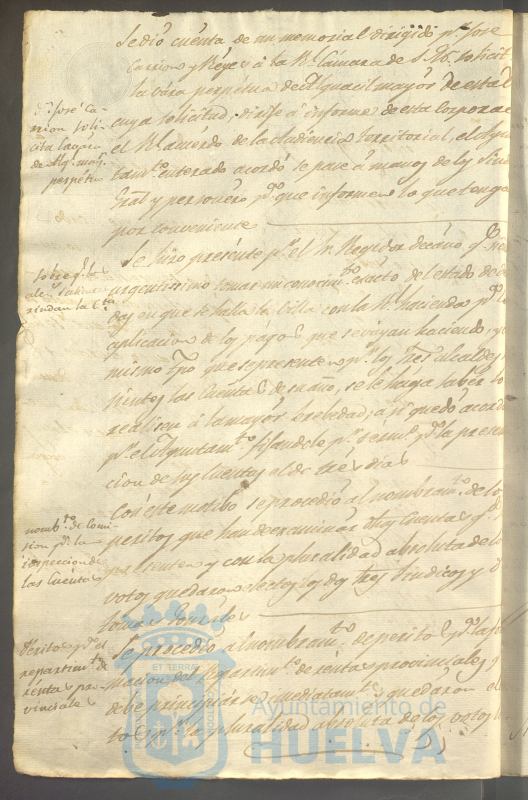 Se dió cuenta de un memorial dirigido pr. José
Carrion y Reyes á la Rl. Cámara de S. M. solicit
la vara perpétua de Alguacil mayor de esta
cuya solicitud, dirije á informe de esta Corporac
el Rl. acuerdo de la Audiencia territorial, el Ayun
tamto. enterado acordó se pase á manos de los Sind
Gral y personero pa. que informen lo que tengan
por conveniente
Dn. José Ca-
rrion soli-
cita la vara
de Alg. mayr.
perpétuo
Se hizo presente pr. el Sr. Regidor decano, qe.
urgentissimo tomar un conocimto. exacto del estado de
en que se halla la Villa con la Rl. hacienda pa. la
aplicacion de los pagos que se vayan haciendo, y
mismo tpo que se presenten pr. los Tres alcaldes
las Cuentas de su año, se le haga saber lo
realisen á la mayor brebedad; asi quedó acordado
pr. el Ayuntamto. fijandole pr. termo. pa. la presen
cion de sus Cuentas el de tres dias
sobre qe. los
rindan la Cta.
Con este motibo se procedió al nombramto. de los
peritos que han de examinar dhas Cuentas qe.
presenten y con la pluralidad absoluta de
votos quedaron electos los dos Sres Sindicos y
nombto. de Comi-
sion pa. la
inspeccion de
las Cuentas
Se procedió al nombramto. de perito pa. la for
macion del repartimto. de rentas provinciales y
debe principiar inmediatamte. y quedaron el
to pr. la pluralidad absoluta de los votos
Périto pa. el
repartimto. de
réntas pro-
vinciales
ET TERRAE
Ayuntamiento de
HUELVA